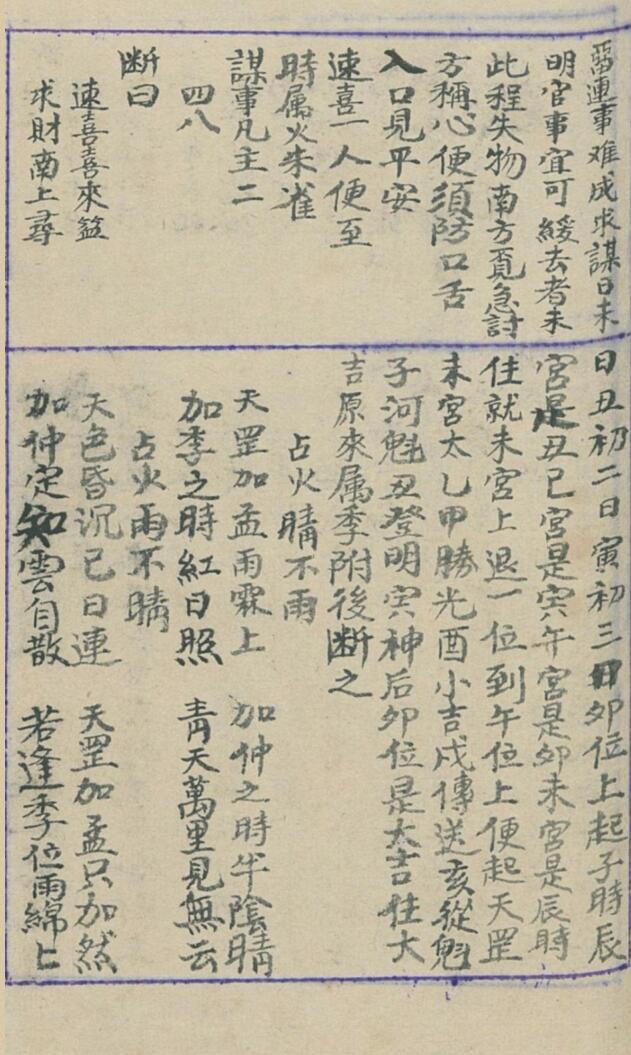 畄連事难成求謀日未
明官事宜可緩去者未
此程失物南方覓急討
方稱心便須防口舌
入口見平安
速喜一人便至
時属火朱雀
謀事凡主二
四八
断曰
速喜喜來
求財南上尋
日丑初二日寅初三日卯位上起子時辰
宮是丑巳宮是寅午宮是卯未宮是辰時
住就未宮上退一位到午位上便起天罡
未宮太乙甲勝光酉小吉戌傳送亥從魁
子河魁丑登明寅神后卯位是大吉住大
吉原來属季附後断之
占火晴不雨
天罡加孟雨霖上 加仲之時半陰晴
加季之時紅日照 青天萬里見無云
占火雨不晴
天色昏沉已日連 天罡加孟只加然
加仲定知雲自散 若逢季位雨綿上